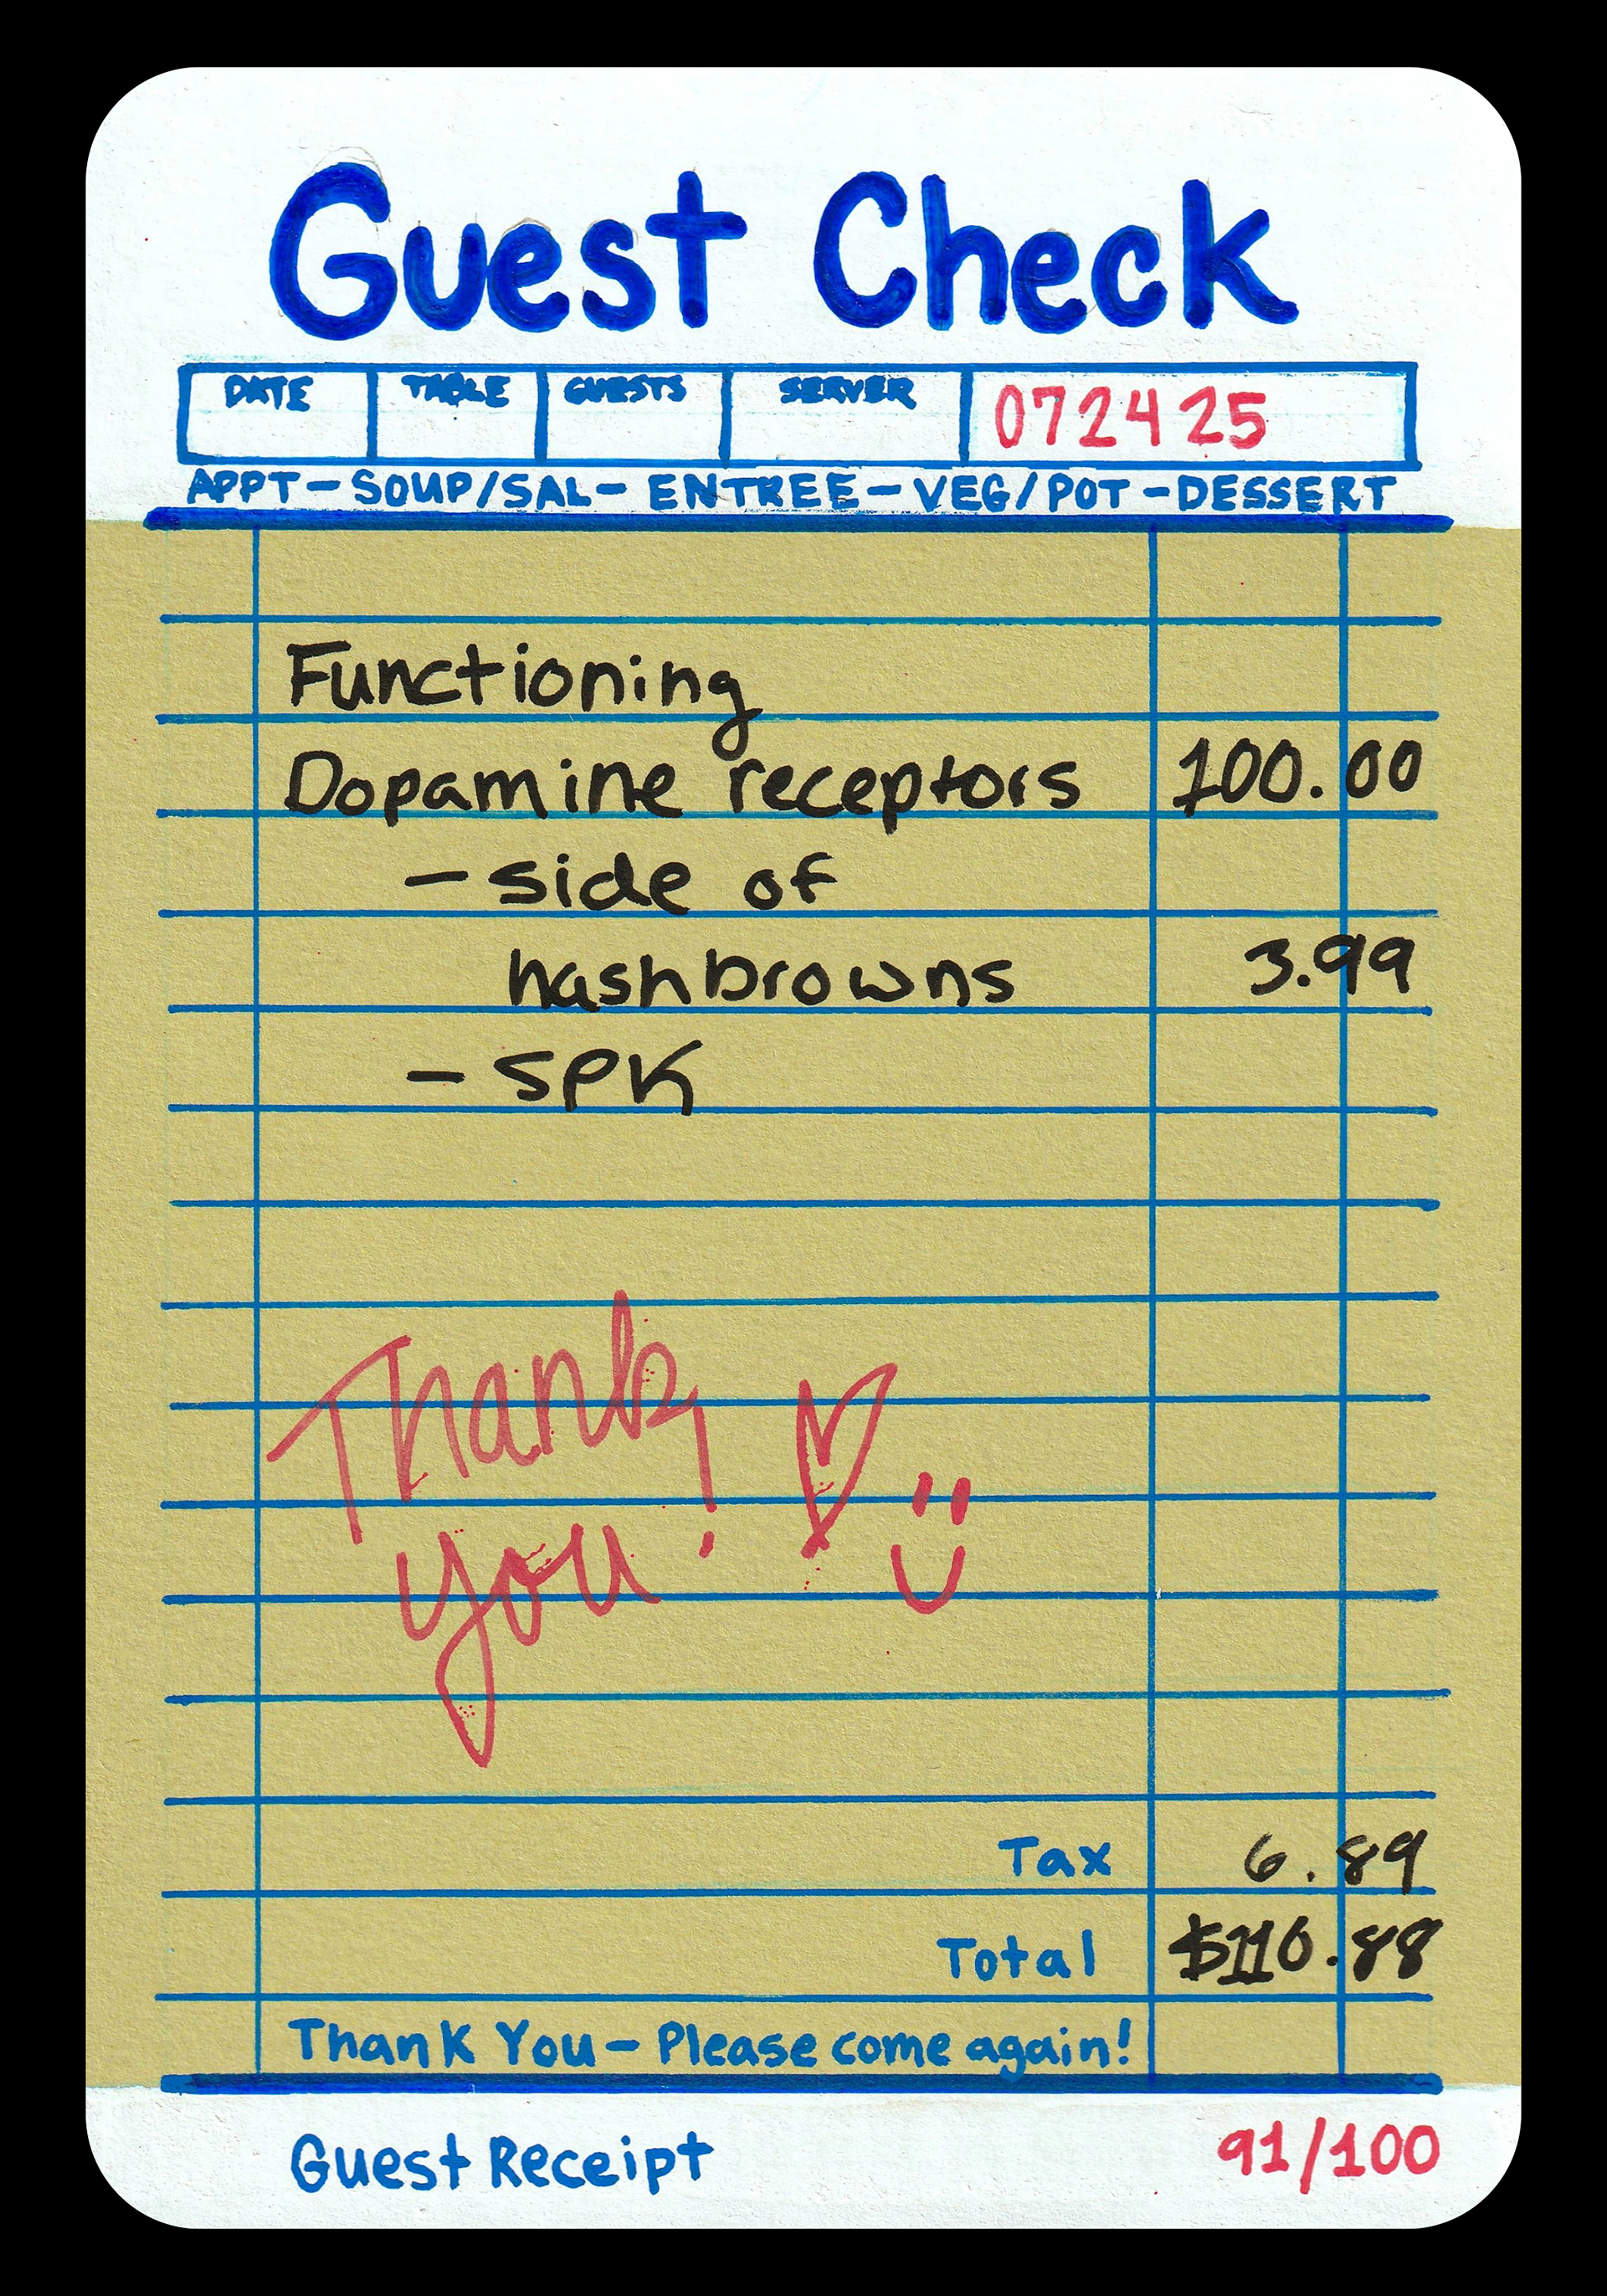 Guest Check
DATE TABLE GUESTS SERVER 072425
APPT-SOUP/SAL-ENTREE-VEG/POT-DESSERT
Functioning
Dopamine receptors 100.00
- side of
hashbrowns 3.99
- SPK
Thank
you!
Tax 6.89
Total $110.88
Thank You - Please come again!
Guest Receipt 91/100